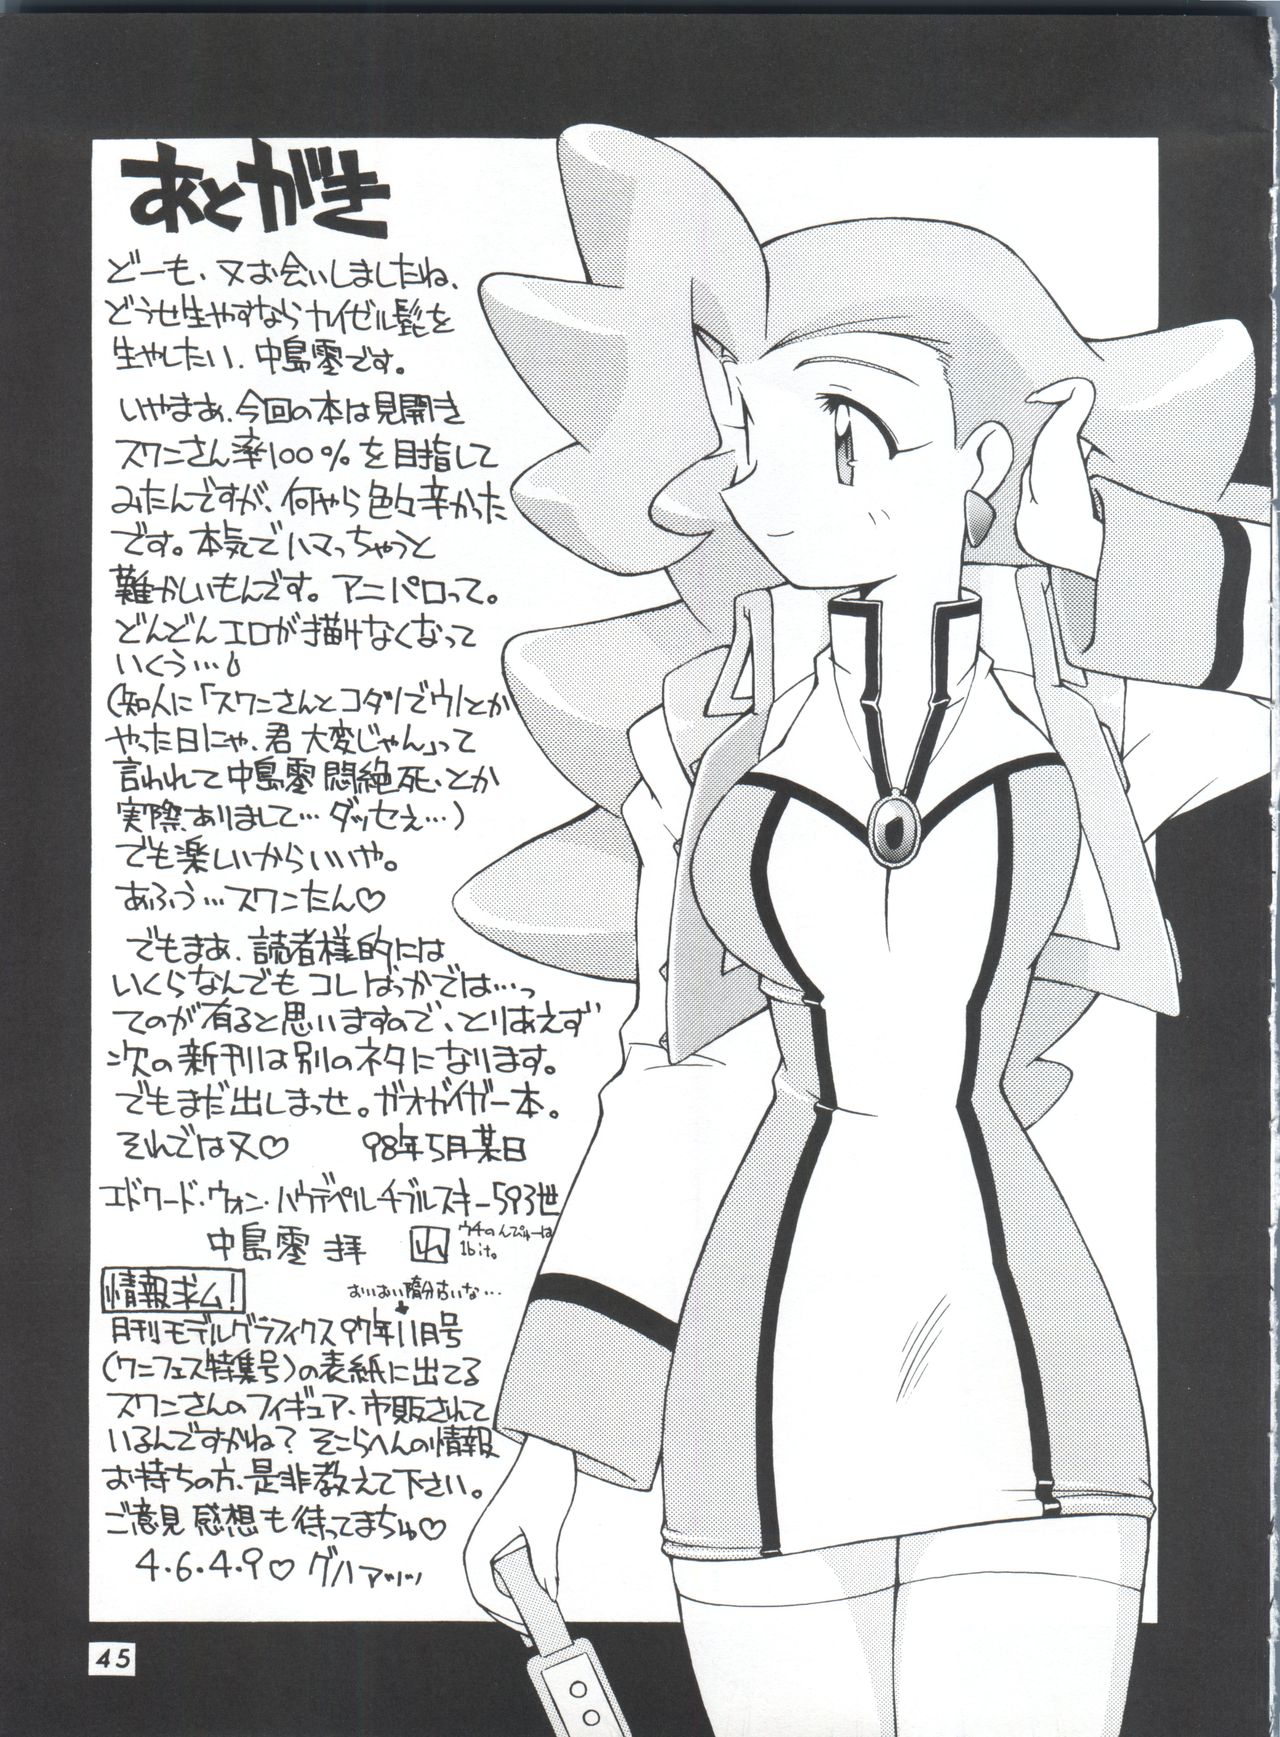 あとがき
どーも、又お会いしましたね、
どうせ生やすならカイゼル髭を
生やしたい、中島零です。
いやまあ、今回の本は見開き
スワンさん率100%を目指して
みたんですが、何やら色々辛かった
です。本気でハマっちゃうと
難かしいもんです。アニパロって。
どんどんエロが描けなくなって
いくう…
(知人に「スワンさんとコダマでウノとか
やった日にゃ、君大変じゃん」って
言われて中島零悶絶死、とか
実際ありまして…ダッセぇ…)
でも楽しいからいいや。
あふう…スワンたん♡
でもまあ、読者様的には
いくらなんでもコレばっかでは…っ
てのが有ると思いますので、とりあえず
次の新刊は別のネタになります。
でもまだ出しまっせ。ガオガイガー本。
それでは又♡ 98年5月某日
エドワード・ウォン・ハウデペルチブルスキー593世
中島零 拝
ウチのんぴゅーは
1bit。
情報求ム!
おいおい随分古いな…
月刊モデルグラフィクス97年11月号
(ワンフェス特集号)の表紙に出てる
スワンさんのフィギュア、市販されて
いるんですかね?そこらへんの情報
お持ちの方、是非教えて下さい。
ご意見感想も待ってまちゅ♡
4.6.4.9♡グハァッッ
45